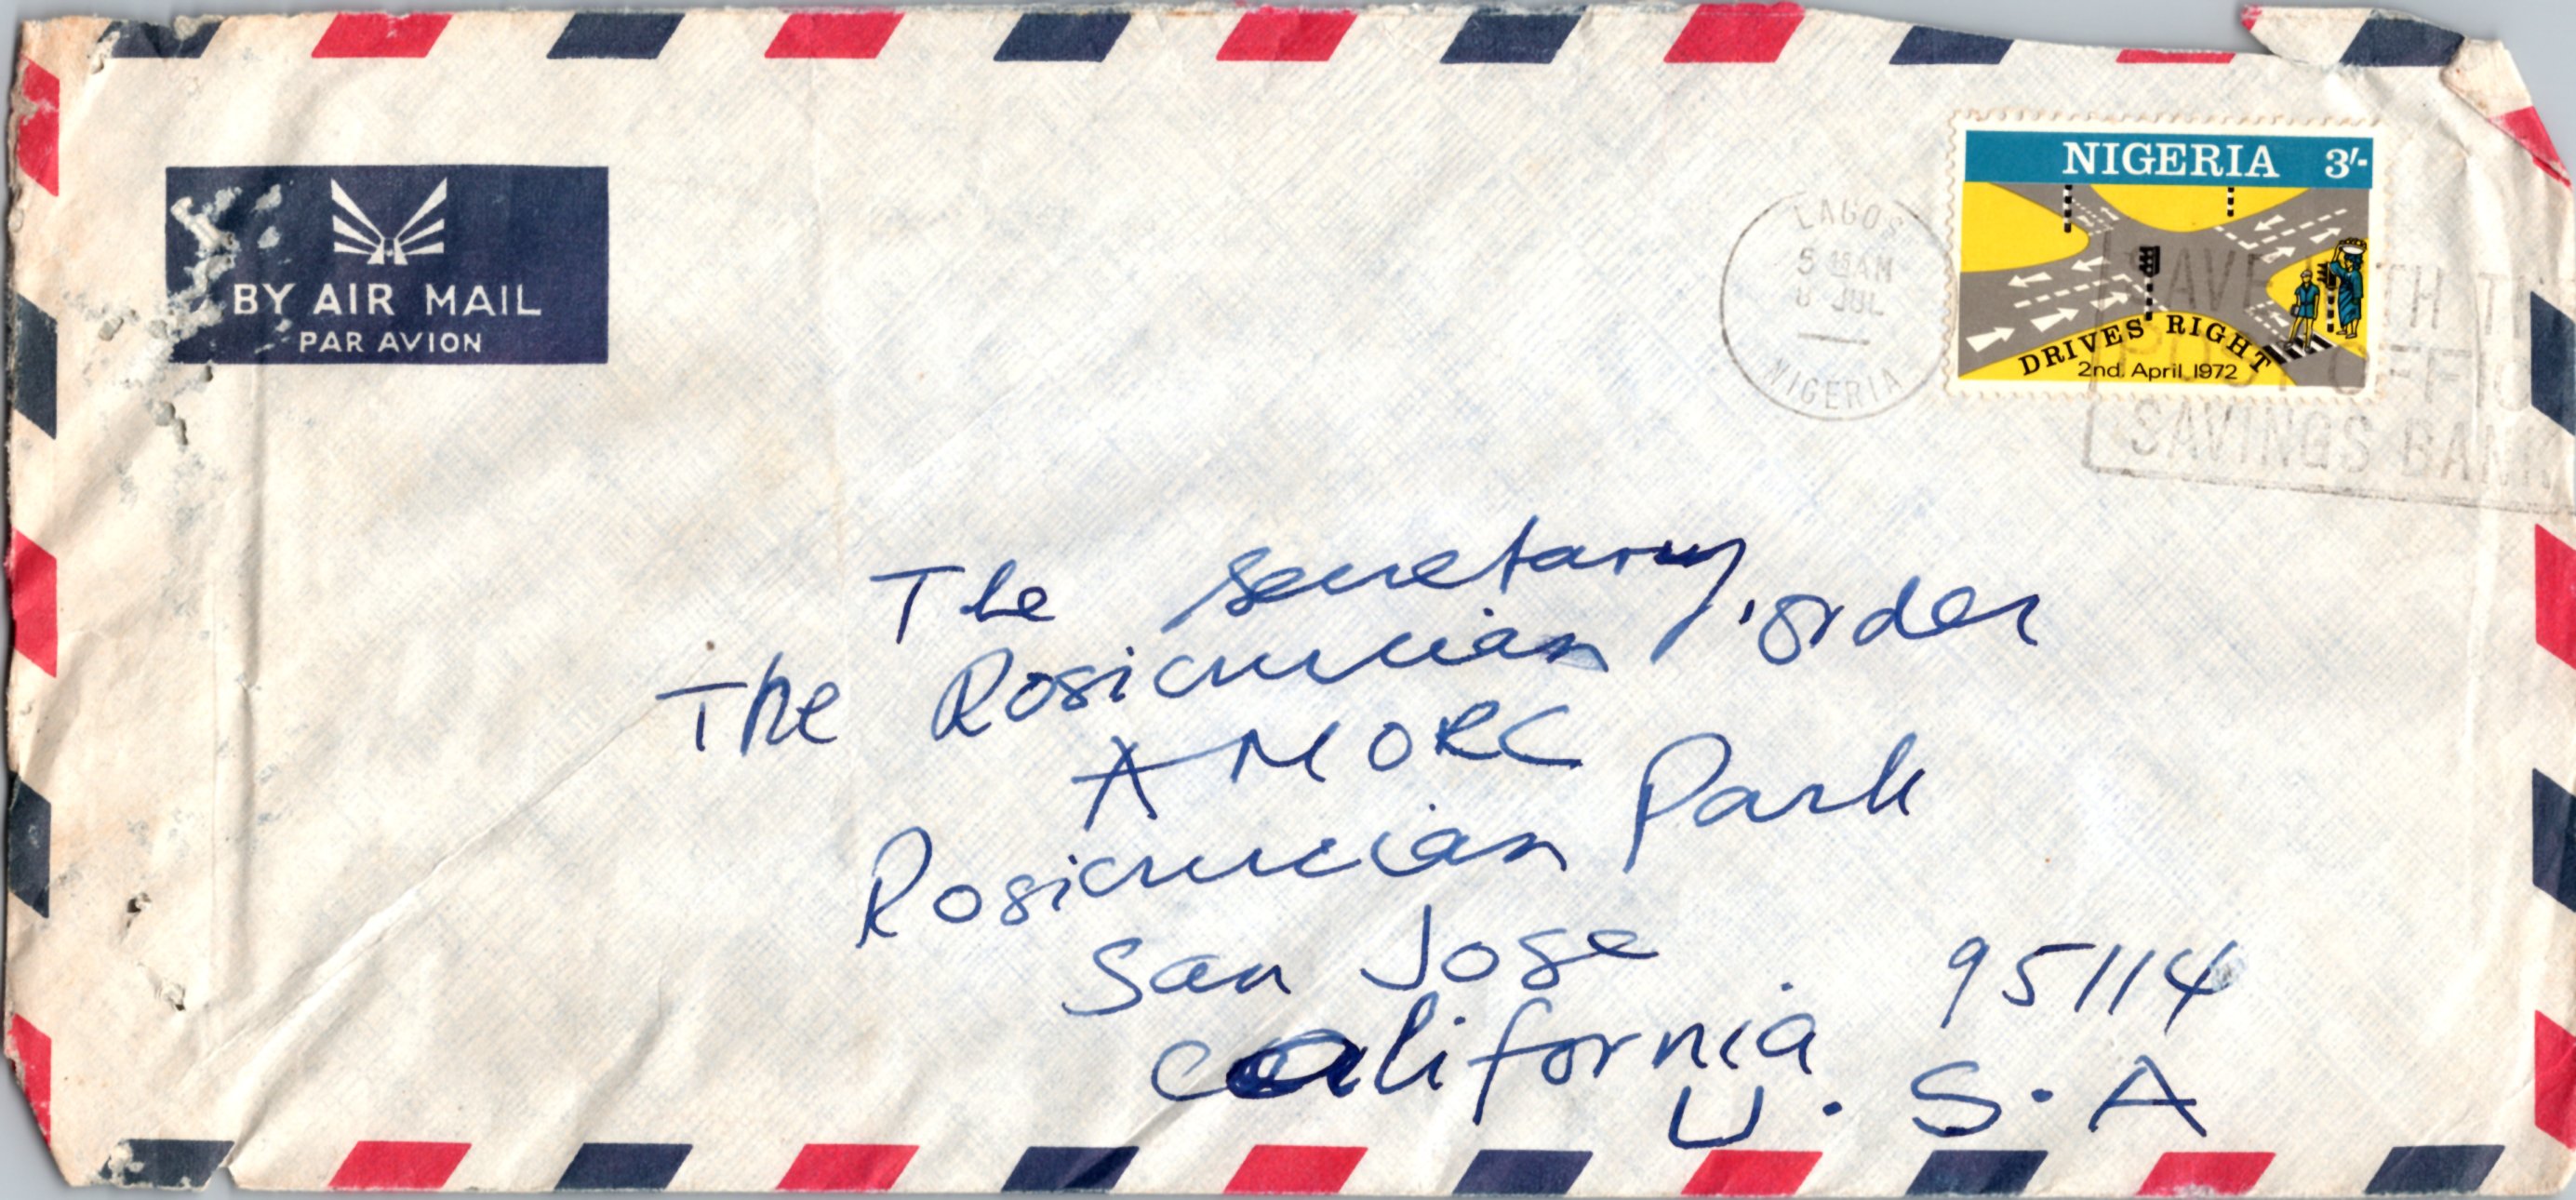 BY AIR MAIL
PAR AVION
LAGOS
8 JUL
NIGERIA
NIGERIA 3/-
DRIVES RIGHT
2nd. April 1972
SAVE WITH TH
POST OFFIC
SAVINGS BANK
The Secretary,
The Rosicrucian order
AMORC
Rosicrucian Park
San Jose 95114
California
U.S.A